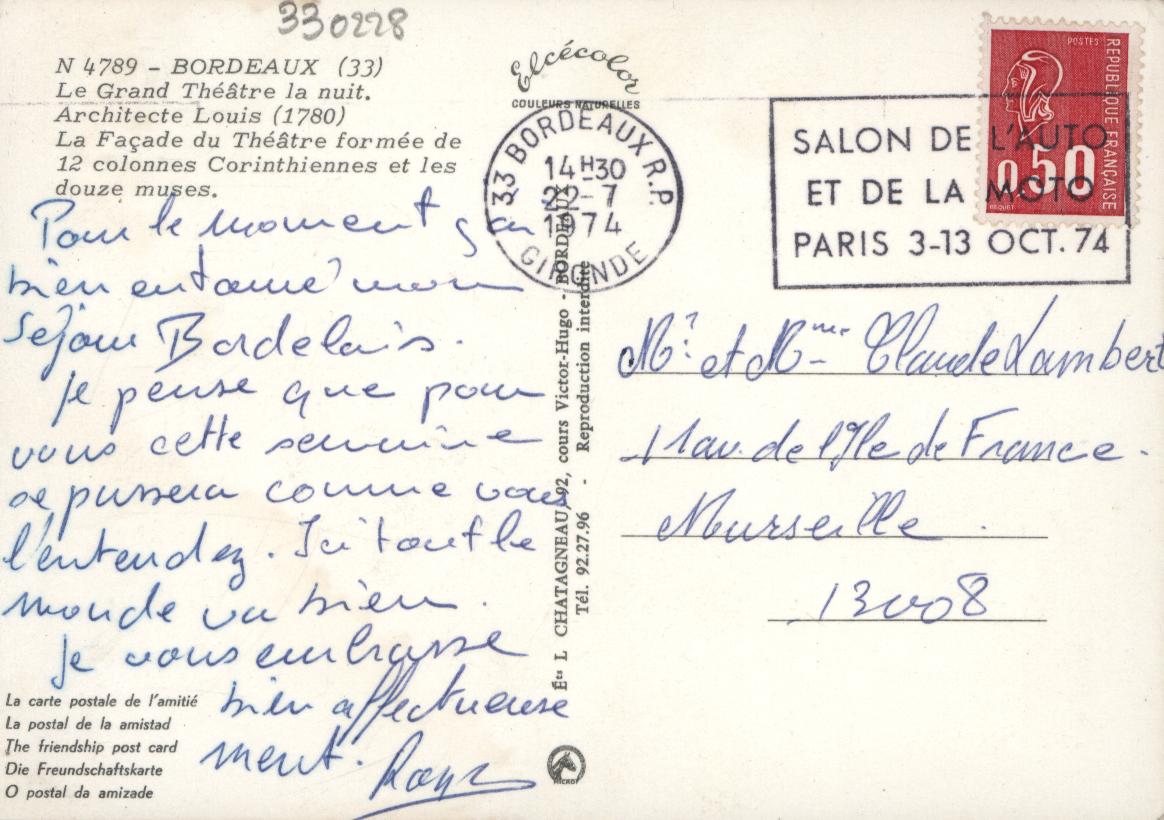 330228
N 4789 – BORDEAUX (33)
Le Grand Théâtre la nuit.
Architecte Louis (1780)
La Façade du Théâtre formée de
12 colonnes Corinthiennes et les
douze muses.
Pour le moment
bien entamé mon
Séjour Bordelais.
Je pense que pour
vous cette semaine
se passera comme vous
l'entendez. Ici tout le
monde va bien.
Je vous embrasse
bien affectueuse
ment.
La carte postale de l'amitié
La postal de la amistad
The friendship post card
Die Freundschaftskarte
O postal da amizade
Elcécolor
COULEURS NATURELLES
33 BORDEAUX R.P.
14 H30
22-7
1974
GIRONDE
Éts L CHATAGNEAU, 92, cours Victor-Hugo - BORDEAUX
Tél. 92.27.96 - Reproduction interdite
SALON DE L'AUTO
ET DE LA MOTO
PARIS 3-13 OCT. 74
POSTES
REPUBLIQUE FRANÇAISE
0,50
BEQUET
Mr et Mme Claude Lambert
11 av. de l'Ile de France.
Marseille.
13008